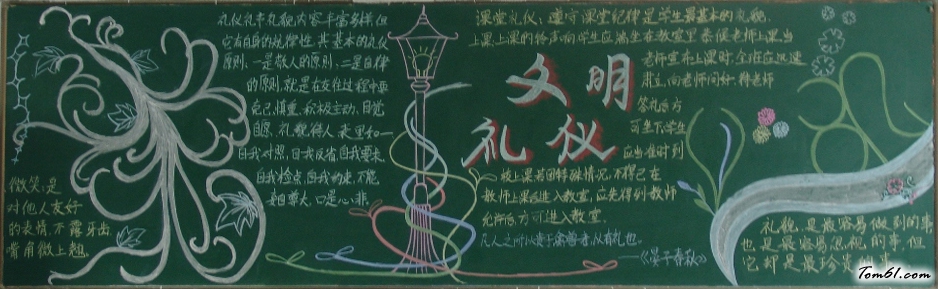 礼仪礼节礼貌内容丰富多样但
它有自身的规律性,其基本的礼仪
原则:一是敬人的原则;二是自律
的原则,就是在交往过程中要
克己,慎重,积极主动,自觉
自愿,礼貌待人,表里如一
自我对照,自我反省,自我要求,
自我检点,自我约束,不能
妄自尊大,口是心非。
微笑,是
对他人友好
的表情,不露牙出
嘴角微上翘。
文明
礼仪
课堂礼仪:遵守课堂纪律是学生最基本的礼貌。
上课上课的铃声响学生应端坐在教室里恭候老师上课当
老师宣布上课时,全班应迅速
起立,向老师问好,待老师
答礼后方
可坐下学生
应当准时到
校上课若因特殊情况,不得已在
教师上课后进入教室,应先得到教师
允许后方可进入教室。
凡人之所以贵于禽兽者,以有礼也。
——《晏子春秋》
礼貌,是最容易做到的事
也是最容易忽视的事,但
它却是最珍贵的
Tom61.com